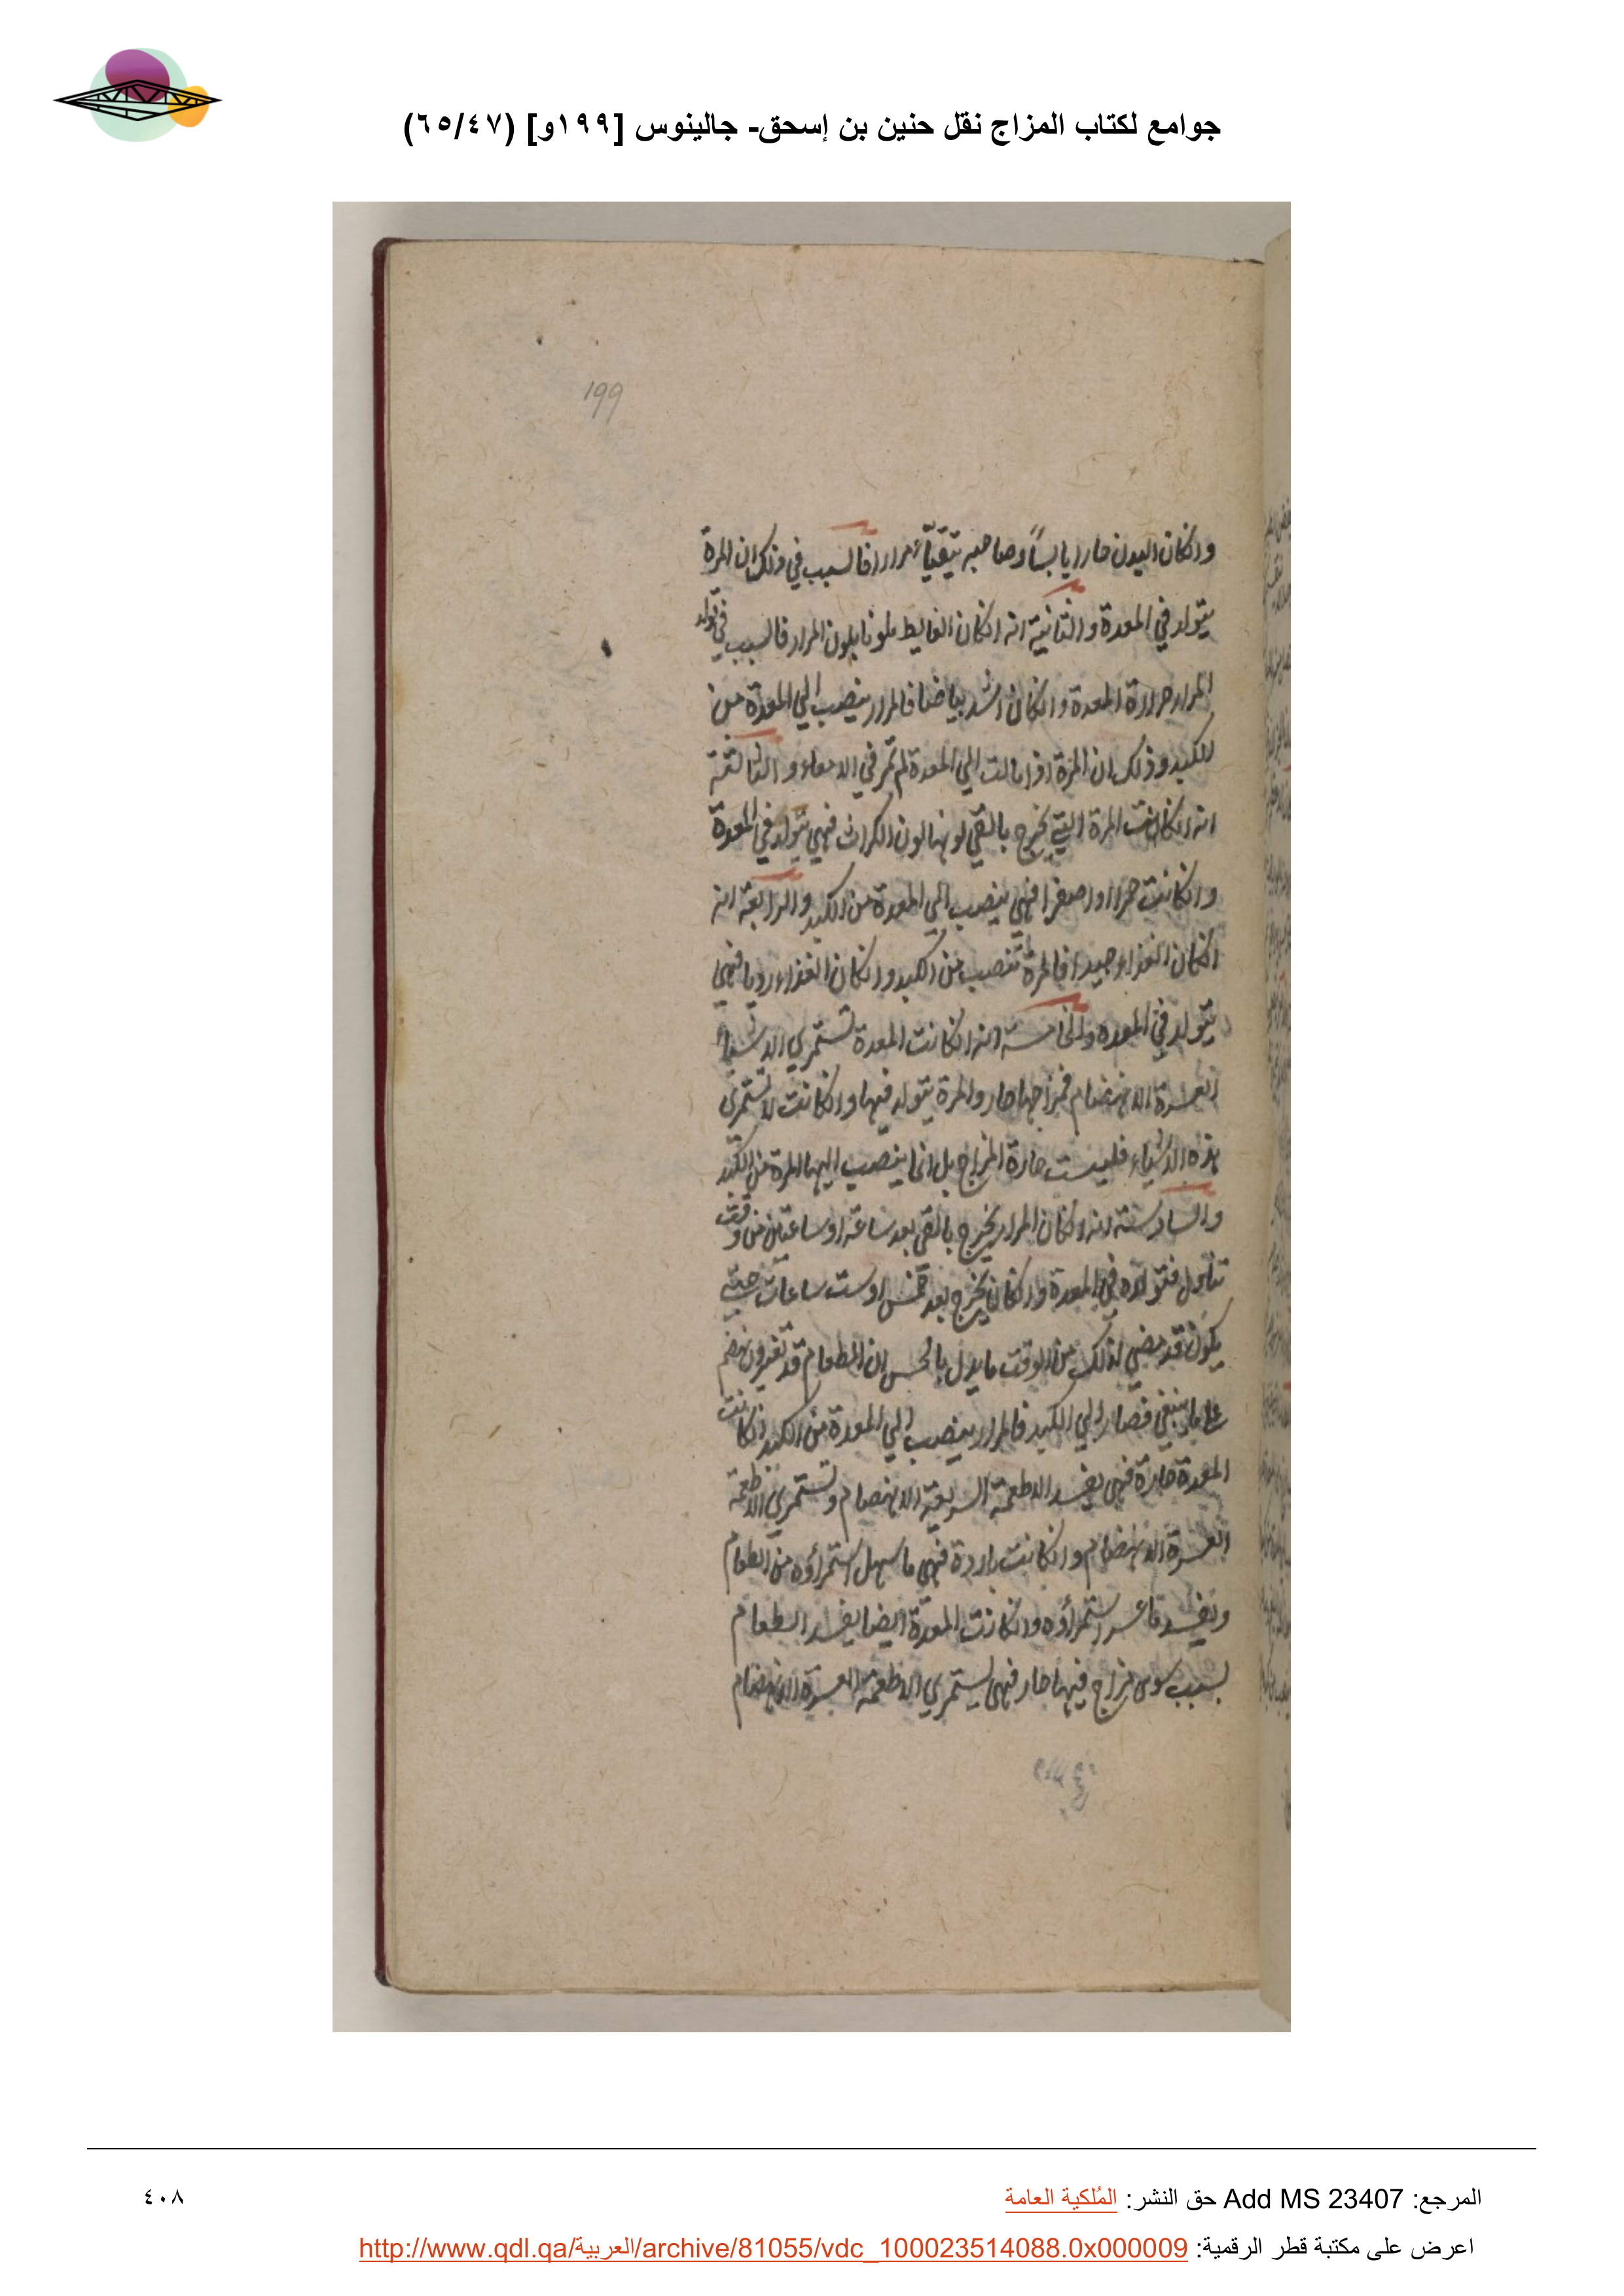 جوامع لكتاب المزاج نقل حنين بن إسحق- جالينوس [١٩٩و] (٦٥/٤٧)
199
وانكان البدن حارا يابساً وصاحبه يتقيّاء مرارا فالسبب في ذلك ان المرة
يتولد في المعدة والثانية انه انكان الغايط ملونا بلون المرار فالسبب في تولد
المرار حرارة المعدة وانكان اشد بياضا فالمرار ينصب الي المعدة من
الكبد وذلك ان المرة اذا مالت الي المعدة لم تمر في الامعاء والثالثة
انه انكانت المرة التي يخرج بالقي لونها لون الكراث فهي يتولد في المعدة
وانكانت حمرا او اصفرا فهي ينصب الي المعدة من الكبد والرابعة انه
انكان الغذاء جيدا فالمرة تنصب من الكبد وانكان الغذاء رديا فهي
يتولد في المعده والخامسة انه انكانت المعدة تستمري الاشياء
العسرة الانهضام فمزاجها حار والمرة يتولد فيها وانكانت لا تستمري
هذه الاشياء فليست حارة المزاج بل انما ينصب اليها المرة من الكبد
والسادسة انه انكان المرار يخرج بالقي بعد ساعة او ساعتين من وقت
تناول فتولده في المعدة وانكان يخرج بعد خمس او ست ساعات حتي
يكون قد مضي لذلك من الوقت ما يدل بالحس ان الطعام قد تغير وانهضم
علي ما ينبغي فصار الي الكبد فالمرار ينصب الي المعدة من الكبد انكانت
المعدة حارة فهي يفسد الاطعمة السريعة الانهضام وتستمري الاطعمة
العسرة الانهضام وانكانت باردة فهي ما سهل استمراؤه من الطعام
ويفسد ما عسر استمراؤه وانكانت المعدة ايضا يفسد الطعام
بسبب سوى مزاج فيها حار فهي يستمري الاطعمة العسرة الانهضام
المرجع: Add MS 23407 حق النشر: المُلكية العامة
٤٠٨
اعرض على مكتبة قطر الرقمية: http://www.qdl.qa/العربية/archive/81055/vdc_100023514088.0x000009